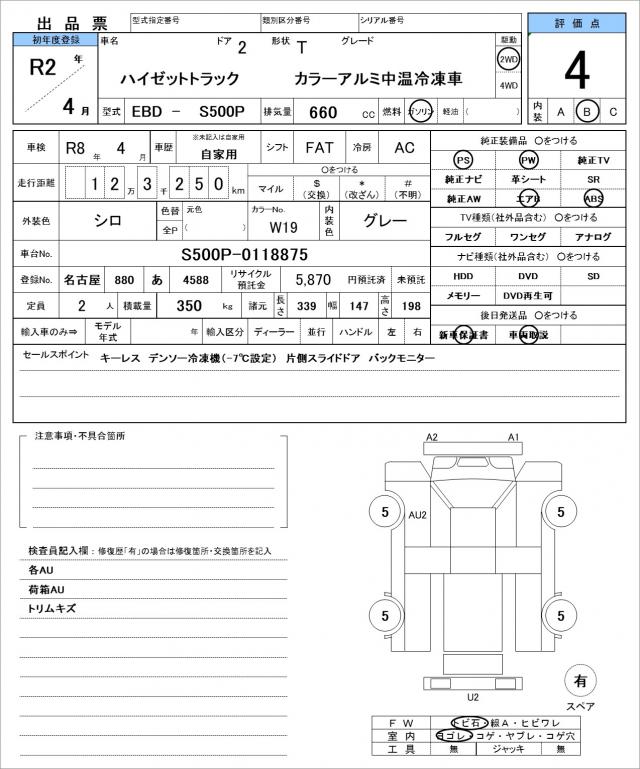 出品票 型式指定番号 類別区分番号 シリアル番号 評価点
初年度登録 車名 ドア 2 形状 T グレード 駆動
R2 年 ハイゼットトラック カラーアルミ中温冷凍車 2WD 4
4WD
4 月 型式 EBD － S500P 排気量 660 cc 燃料 ガソリン 軽油 ( ) 内装 A B C
車検 R8 年 4 月 車歴 ※未記入は自家用 自家用 シフト FAT 冷房 AC 純正装備品 〇をつける
PS PW 純正TV
走行距離 1 2 万 3 千 2 5 0 km 〇をつける
マイル $ (交換) * (改ざん) # (不明) 純正ナビ 革シート SR
純正AW エアB ABS
外装色 シロ 色替 元色 カラーNo. 内装色 グレー TV種類(社外品含む) 〇をつける
全P ( ) W19 フルセグ ワンセグ アナログ
車台No. S500P-0118875 ナビ種類(社外品含む) 〇をつける
登録No. 名古屋 880 あ 4588 リサイクル預託金 5,870 円預託済 未預託 HDD DVD SD
定員 2 人 積載量 350 kg 諸元 長さ 339 幅 147 高さ 198 メモリー DVD再生可
後日発送品 〇をつける
輸入車のみ⇒ モデル年式 年 輸入区分 ディーラー 並行 ハンドル 左 右 新車保証書 車両取説
セールスポイント キーレス デンソー冷凍機(-7℃設定) 片側スライドドア バックモニター
注意事項・不具合箇所
A2 A1
5 AU2 5
検査員記入欄：修復歴「有」の場合は修復箇所・交換箇所を記入
各AU
荷箱AU
トリムキズ
5 5
有
U2 スペア
ＦＷ トビ石・線Ａ・ヒビワレ
室内 ヨゴレ・コゲ・ヤブレ・コゲ穴
工具 無 ジャッキ 無